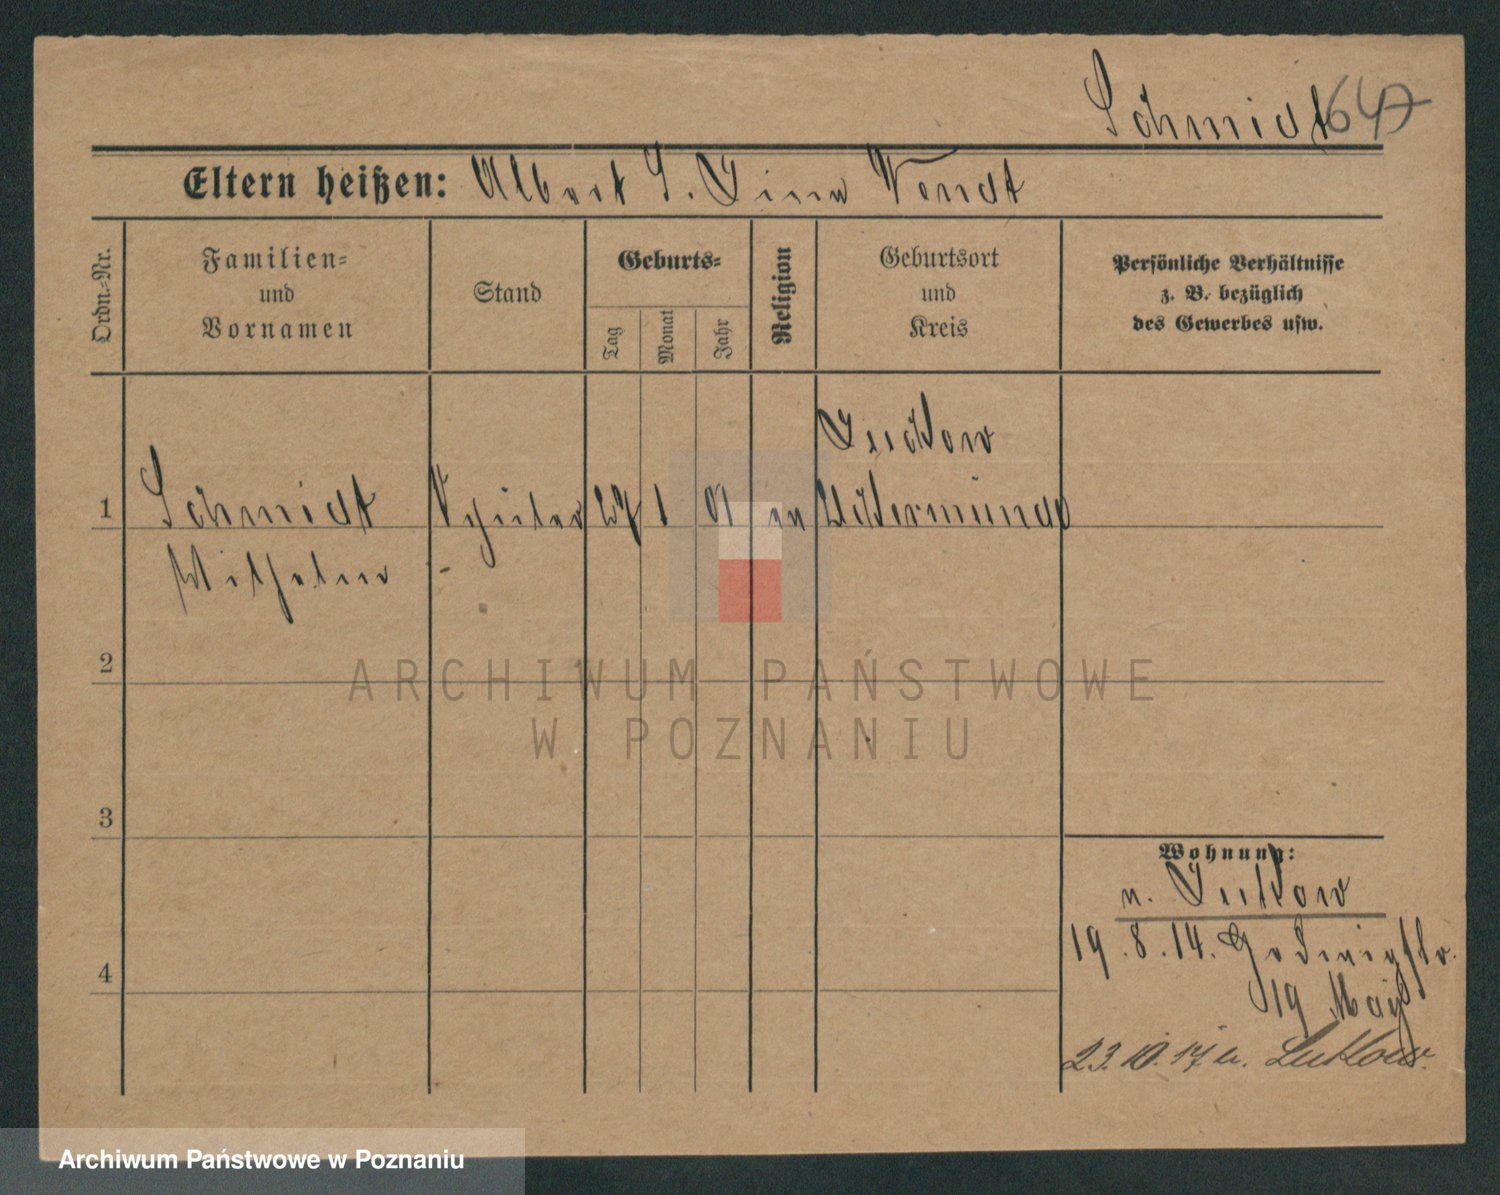 Schmidt 647
Eltern heißen: Albert S. Lina Wendt
Ordn.-Nr.
Familien-
und
Vornamen
Stand
Geburts-
Tag
Monat
Jahr
Religion
Geburtsort
und
Kreis
Persönliche Verhältnisse
z. B. bezüglich
des Gewerbes usw.
Luckow
1 Schmidt Schüler 27 1 01 ev Uckermünde
Wilhelm
2
3
4
Wohnung:
n. Luckow
19.8.14.
19 May
23.10.17 n. Luckow.
ARCHIWUM PAŃSTWOWE
W POZNANIU
Archiwum Państwowe w Poznaniu